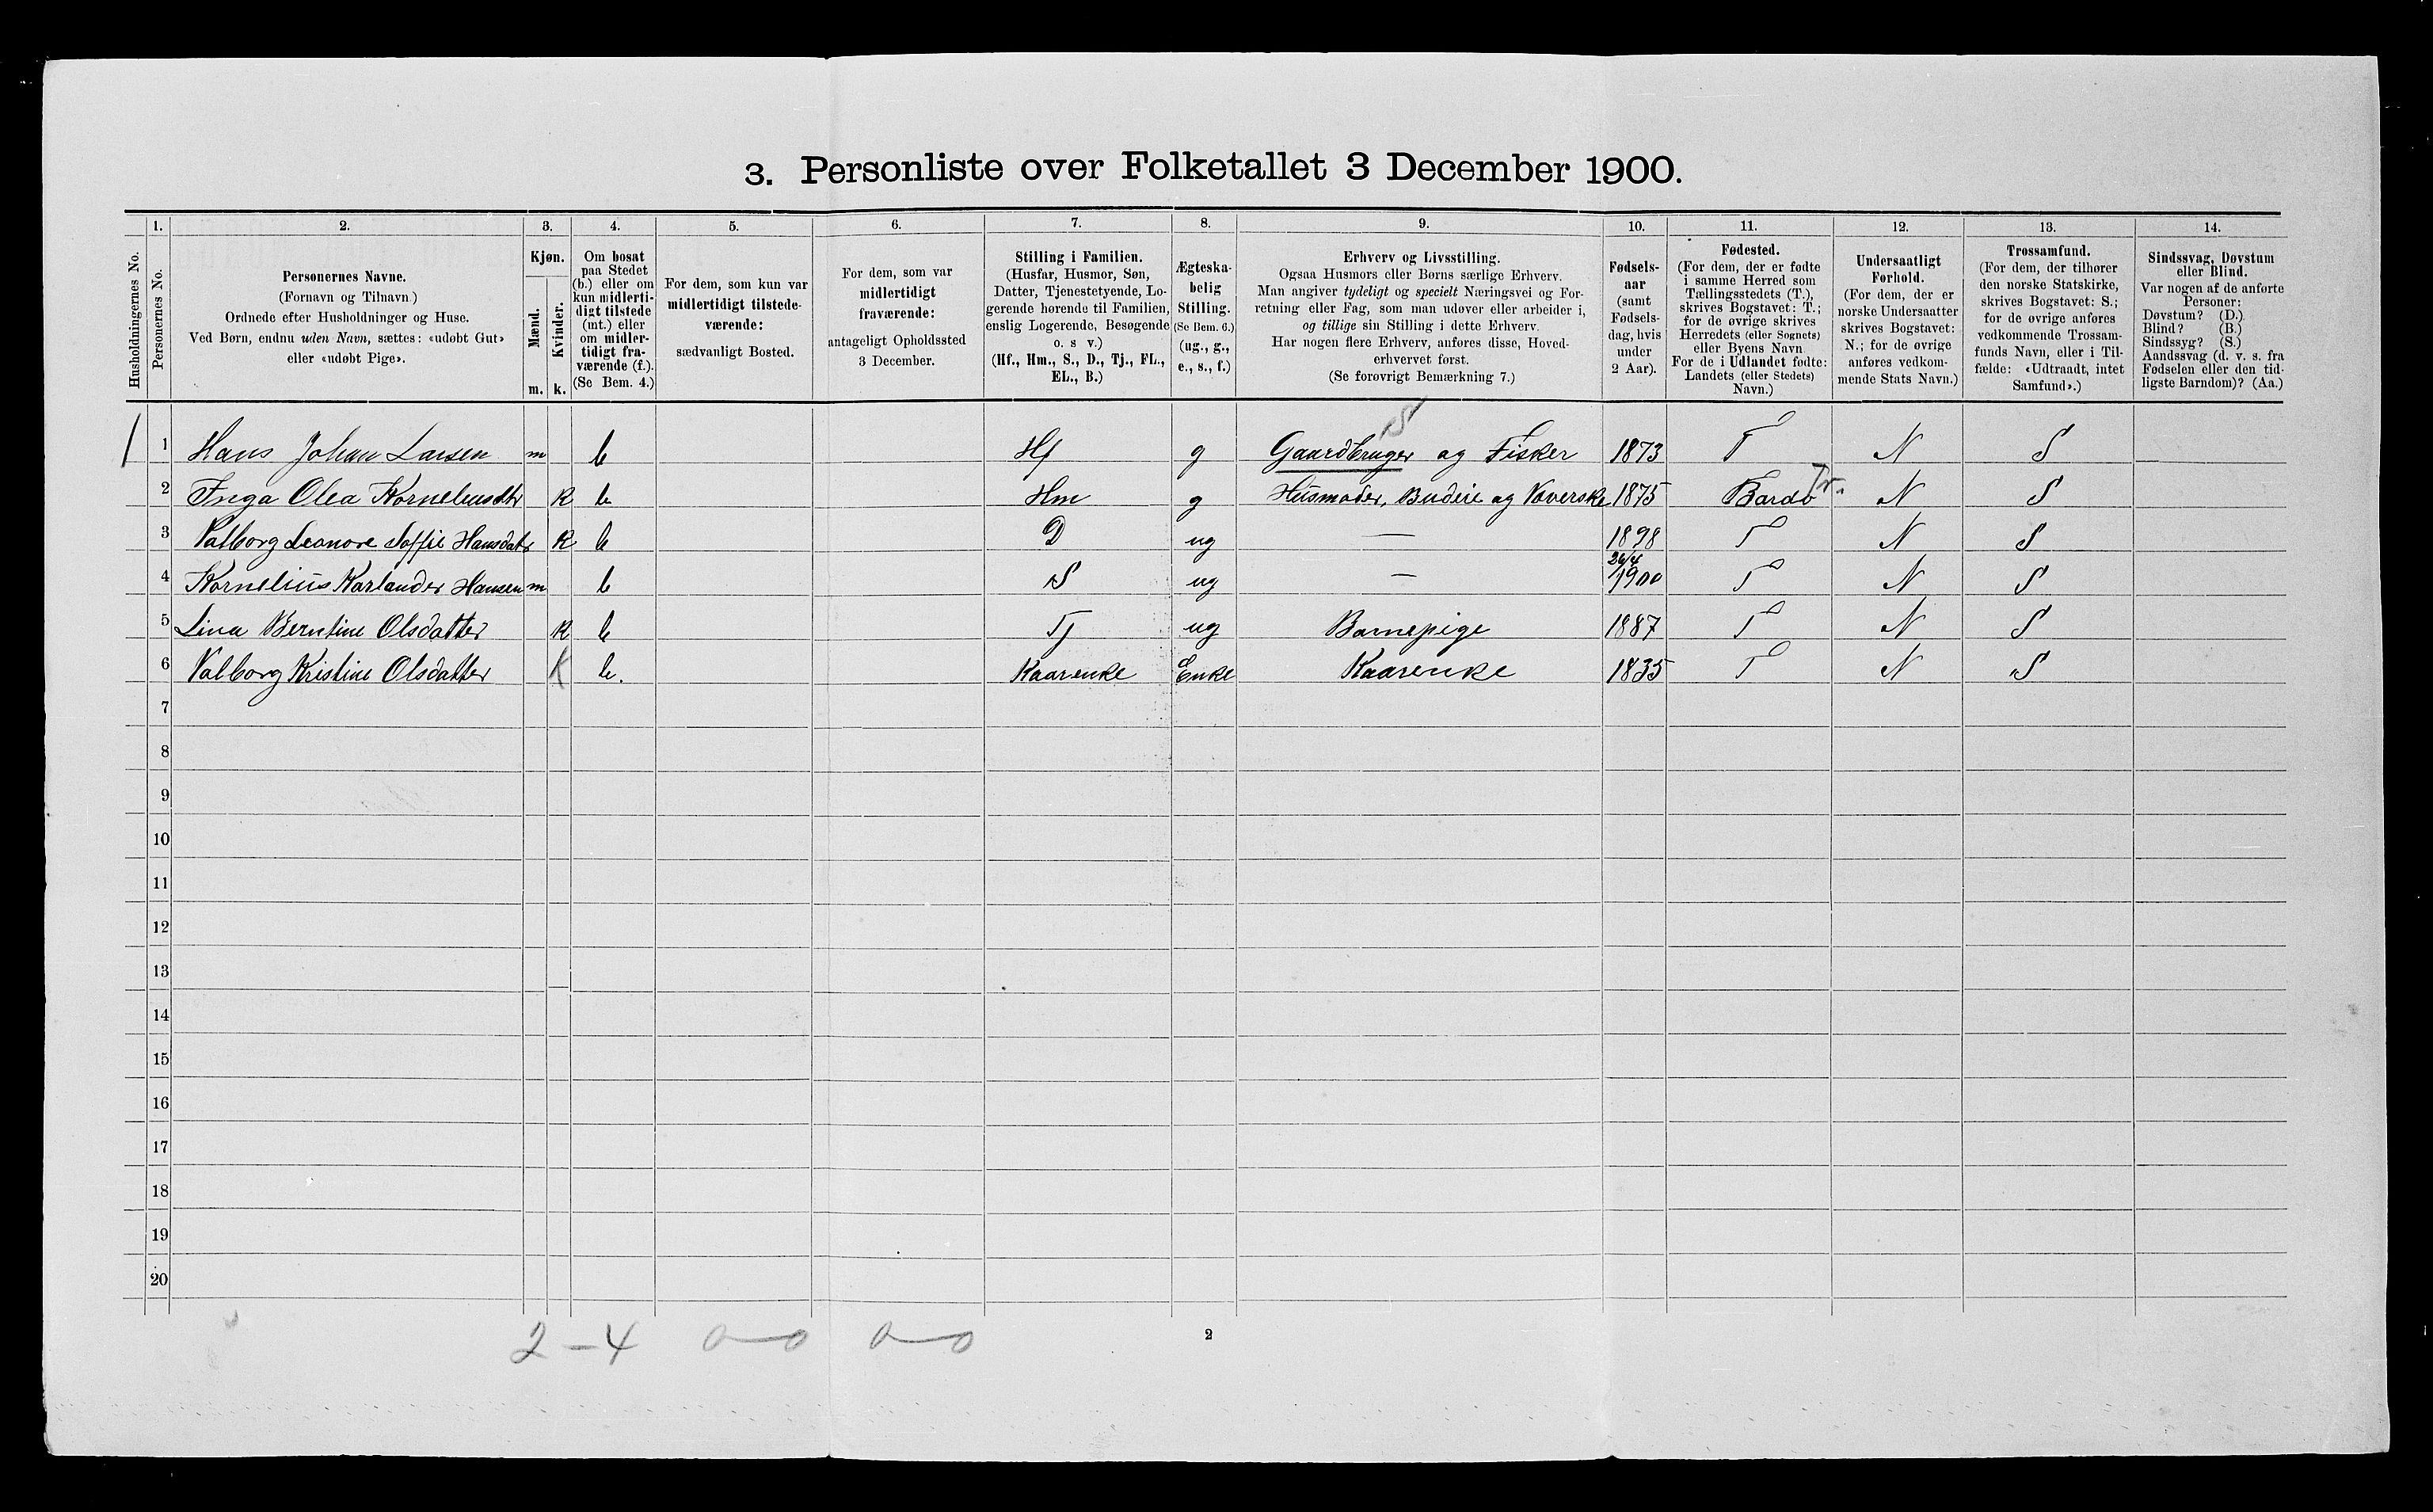 3. Personliste over Folketallet 3 December 1900.
1. 2. 3. 4. 5. 6. 7. 8. 9. 10. 11. 12. 13. 14.
Husholdningernes No.
Personernes No.
Personernes Navne.
(Fornavn og Tilnavn)
Ordnede efter Husholdninger og Huse.
Ved Børn, endnu uden Navn, sættes: «udøbt Gut»
eller «udøbt Pige».
Kjøn.
Mænd.
Kvinder.
m. k.
Om bosat
paa Stedet
(b.) eller om
kun midlerti-
digt tilstede
(mt.) eller
om midler-
tidigt fra-
værende (f.).
(Se Bem. 4.)
For dem, som kun var
midlertidigt tilstede-
værende:
sædvanligt Bosted.
For dem, som var
midlertidigt
fraværende:
antageligt Opholdssted
3 December.
Stilling i Familien.
(Husfar, Husmor, Søn,
Datter, Tjenestetyende, Lo-
gerende hørende til Familien,
enslig Logerende, Besøgende
o. s v.)
(Hf., Hm., S., D., Tj., FL.,
EL., B.)
Ægteska-
belig
Stilling.
(Se Bem. 6.)
(ug., g.,
e., s., f.)
Erhverv og Livsstilling.
Ogsaa Husmors eller Børns særlige Erhverv.
Man angiver tydeligt og specielt Næringsvei og For-
retning eller Fag, som man udøver eller arbeider i,
og tillige sin Stilling i dette Erhverv.
Har nogen flere Erhverv, anføres disse, Hoved-
erhvervet først.
(Se forøvrigt Bemærkning 7.)
Fødsels-
aar
(samt
Fødsels-
dag, hvis
under
2 Aar).
Fødested.
(For dem, der er fødte
i samme Herred som
Tællingsstedets (T.),
skrives Bogstavet: T.;
for de øvrige skrives
Herredets (eller Sognets)
eller Byens Navn
For de i Udlandet fødte:
Landets (eller Stedets)
Navn.)
Undersaatligt
Forhold.
(For dem, der er
norske Undersaatter
skrives Bogstavet:
N.; for de øvrige
anføres vedkom-
mende Stats Navn.)
Trossamfund.
(For dem, der tilhører
den norske Statskirke,
skrives Bogstavet: S.;
for de øvrige anføres
vedkommende Trossam-
funds Navn, eller i Til-
fælde: «Udtraadt, intet
Samfund».)
Sindssvag, Døvstum
eller Blind.
Var nogen af de anførte
Personer:
Døvstum? (D.)
Blind? (B.)
Sindssyg? (S.)
Aandssvag (d. v. s. fra
Fødselen eller den tid-
ligste Barndom)? (Aa.)
S
1 1 Hans Johan Larsen m b Hf g Gaardbruger og Fisker 1873 T N S
2 Inga Olea Korneliusdtr k b Hm g Husmoder, Budeie og Væverske 1875 Bardo Tr. N S
3 Valborg Leonore Soffie Hansdatr k b D ug — 1898 T N S
4 Kornelius Karlander Hansen m b S ug — 26/4 1900 T N S
5 Lina Berntine Olsdatter k b Tj ug Barnepige 1887 T N S
6 Valborg Kristine Olsdatter k b. Kaarenke Enke Kaarenke 1835 T N S
7
8
9
10
11
12
13
14
15
16
17
18
19
20
2 – 4 0—0 0—0
2